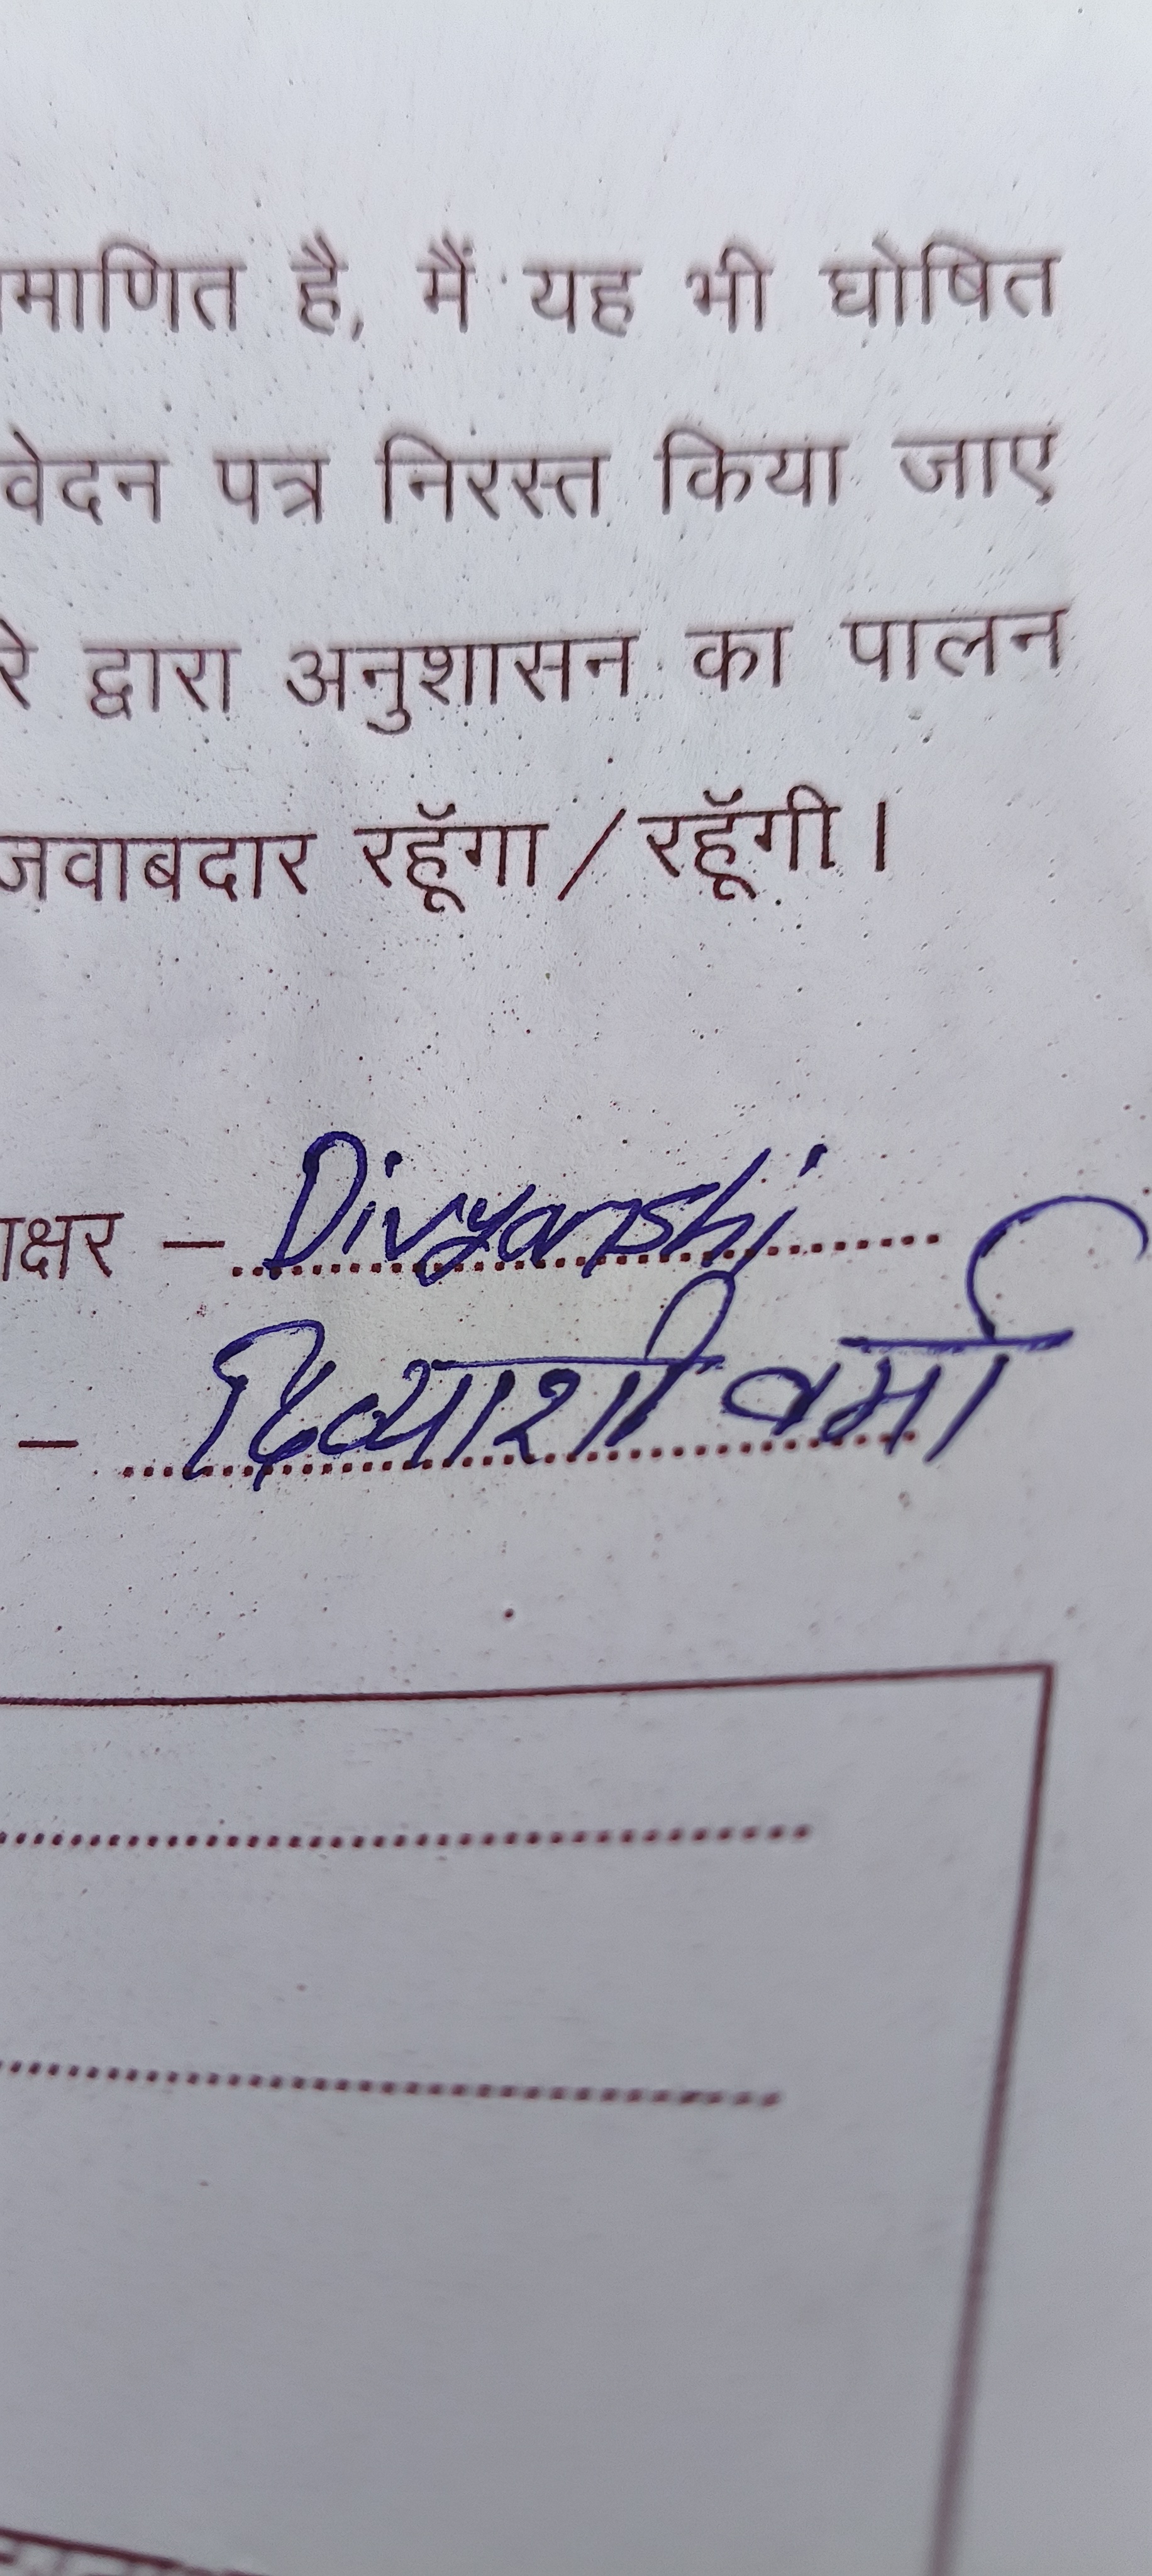 माणित है, मैं यह भी घोषित
वेदन पत्र निरस्त किया जाए
रे द्वारा अनुशासन का पालन
जवाबदार रहूॅगा / रहूॅगी।
ाक्षर – Divyanshi
– दिव्याशी वर्मा